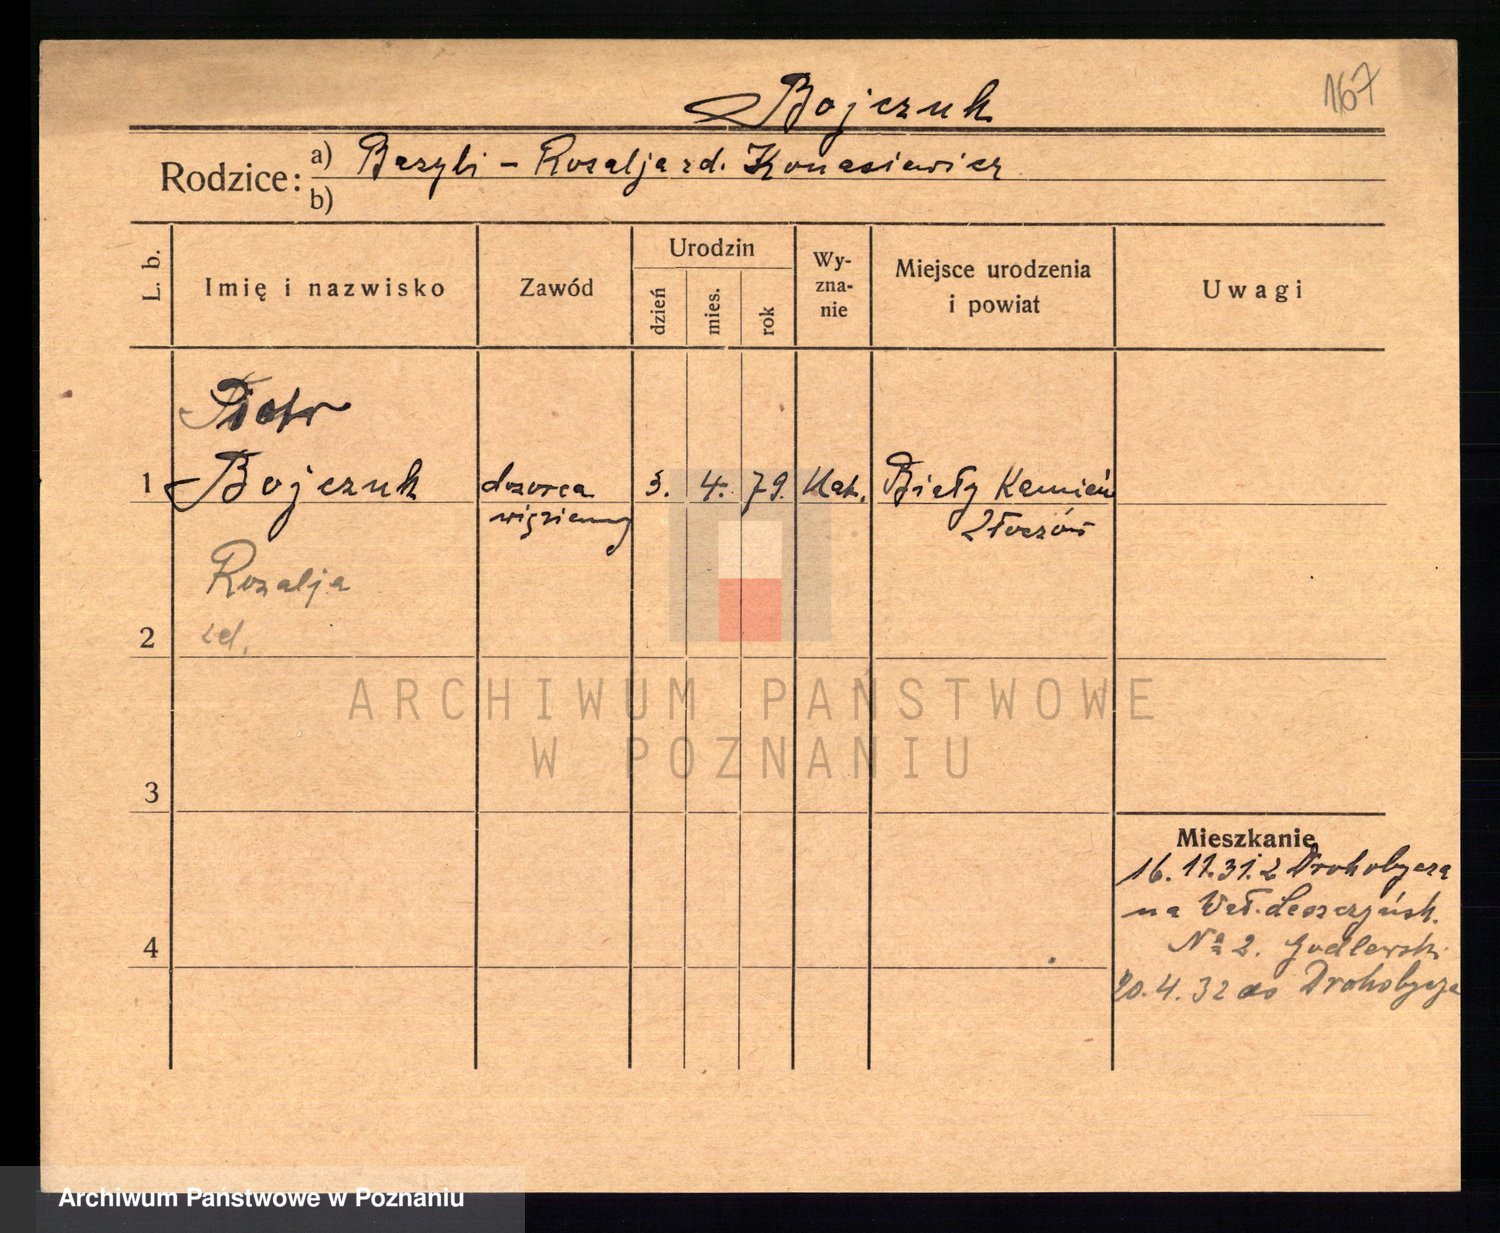 167
Bojczuk
Rodzice: a) Bazyli – Rozalja zd. Konasiewicz
b)
L. b.
Imię i nazwisko
Zawód
Urodzin
dzień
mies.
rok
Wy-
zna-
nie
Miejsce urodzenia
i powiat
Uwagi
Piotr
1 Bojczuk dozorca 3. 4. 79. Kat. Biały Kamień
więzienny Złoczów
Rozalja
2 zd.
ARCHIWUM PAŃSTWOWE
W POZNANIU
3
Mieszkanie
16. 11. 31. z Drohobycza
na Wał. Leszczyńsk.
4 № 2. Godlewski
20. 4. 32 do Drohobycza
Archiwum Państwowe w Poznaniu